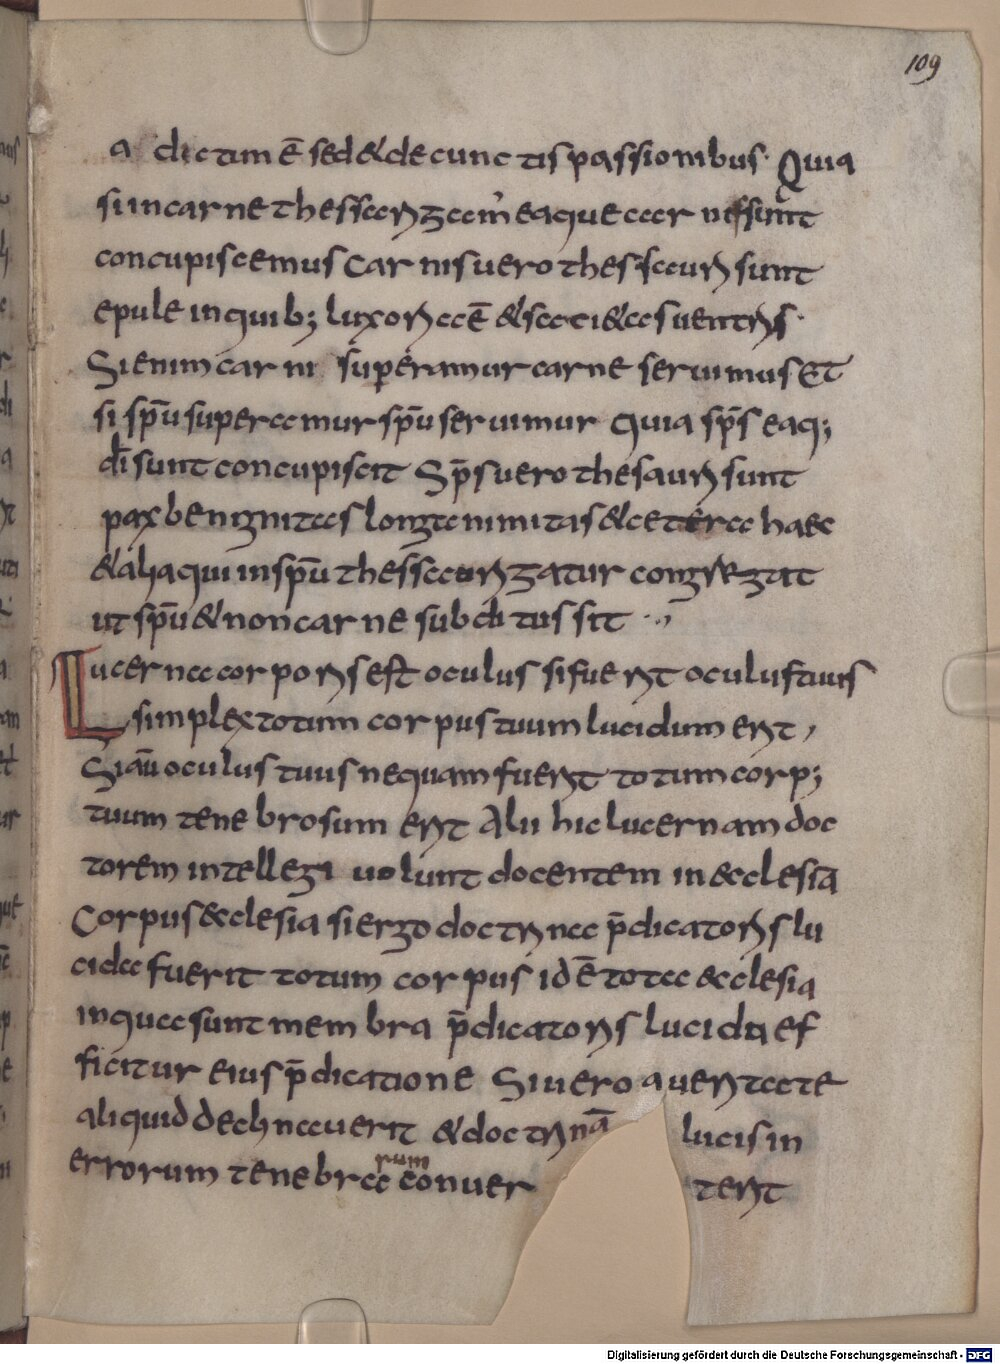 109
a dictum ē sed & de cunctis passionibus· Quia
si in carne thessaurizam̄ eaque carnis sunt
concupiscemus Carnis uero thessauri sunt
epule in quib; luxoria ē & satietas uentris·
Si enim carni superamur carne seruimus Et
si sp̄u superamur sp̄u seruimur Quia sp̄s eaq;
dī sunt concupiscit Sp̄s uero thesauri sunt
pax benignitas longanimitas & cetera haec
& alia qui in sp̄u thessaurizatur congregat
ut sp̄u & non carne subditus sit
Lucerna corporis est oculus si fuerit oculus tuus
simplex totum corpus tuum lucidum erit,
Si aū oculus tuus nequam fuerit totum corp;
tuum tenebrosum erit Alii hic lucernam doc
torem intellegi uolunt docentem in ecclesia
Corpus ecclesia si ergo doctrina p̄dicatoris lu
cida fuerit totum corpus id ē tota ecclesia
in qua sunt membra p̄dicatoris lucida ef
ficitur eius p̄dicatione Si uero a ueritate
aliquid declinauerit & doctrinā lucis in
errorum tenebrarum conuerterit
Digitalisierung gefördert durch die Deutsche Forschungsgemeinschaft - DFG